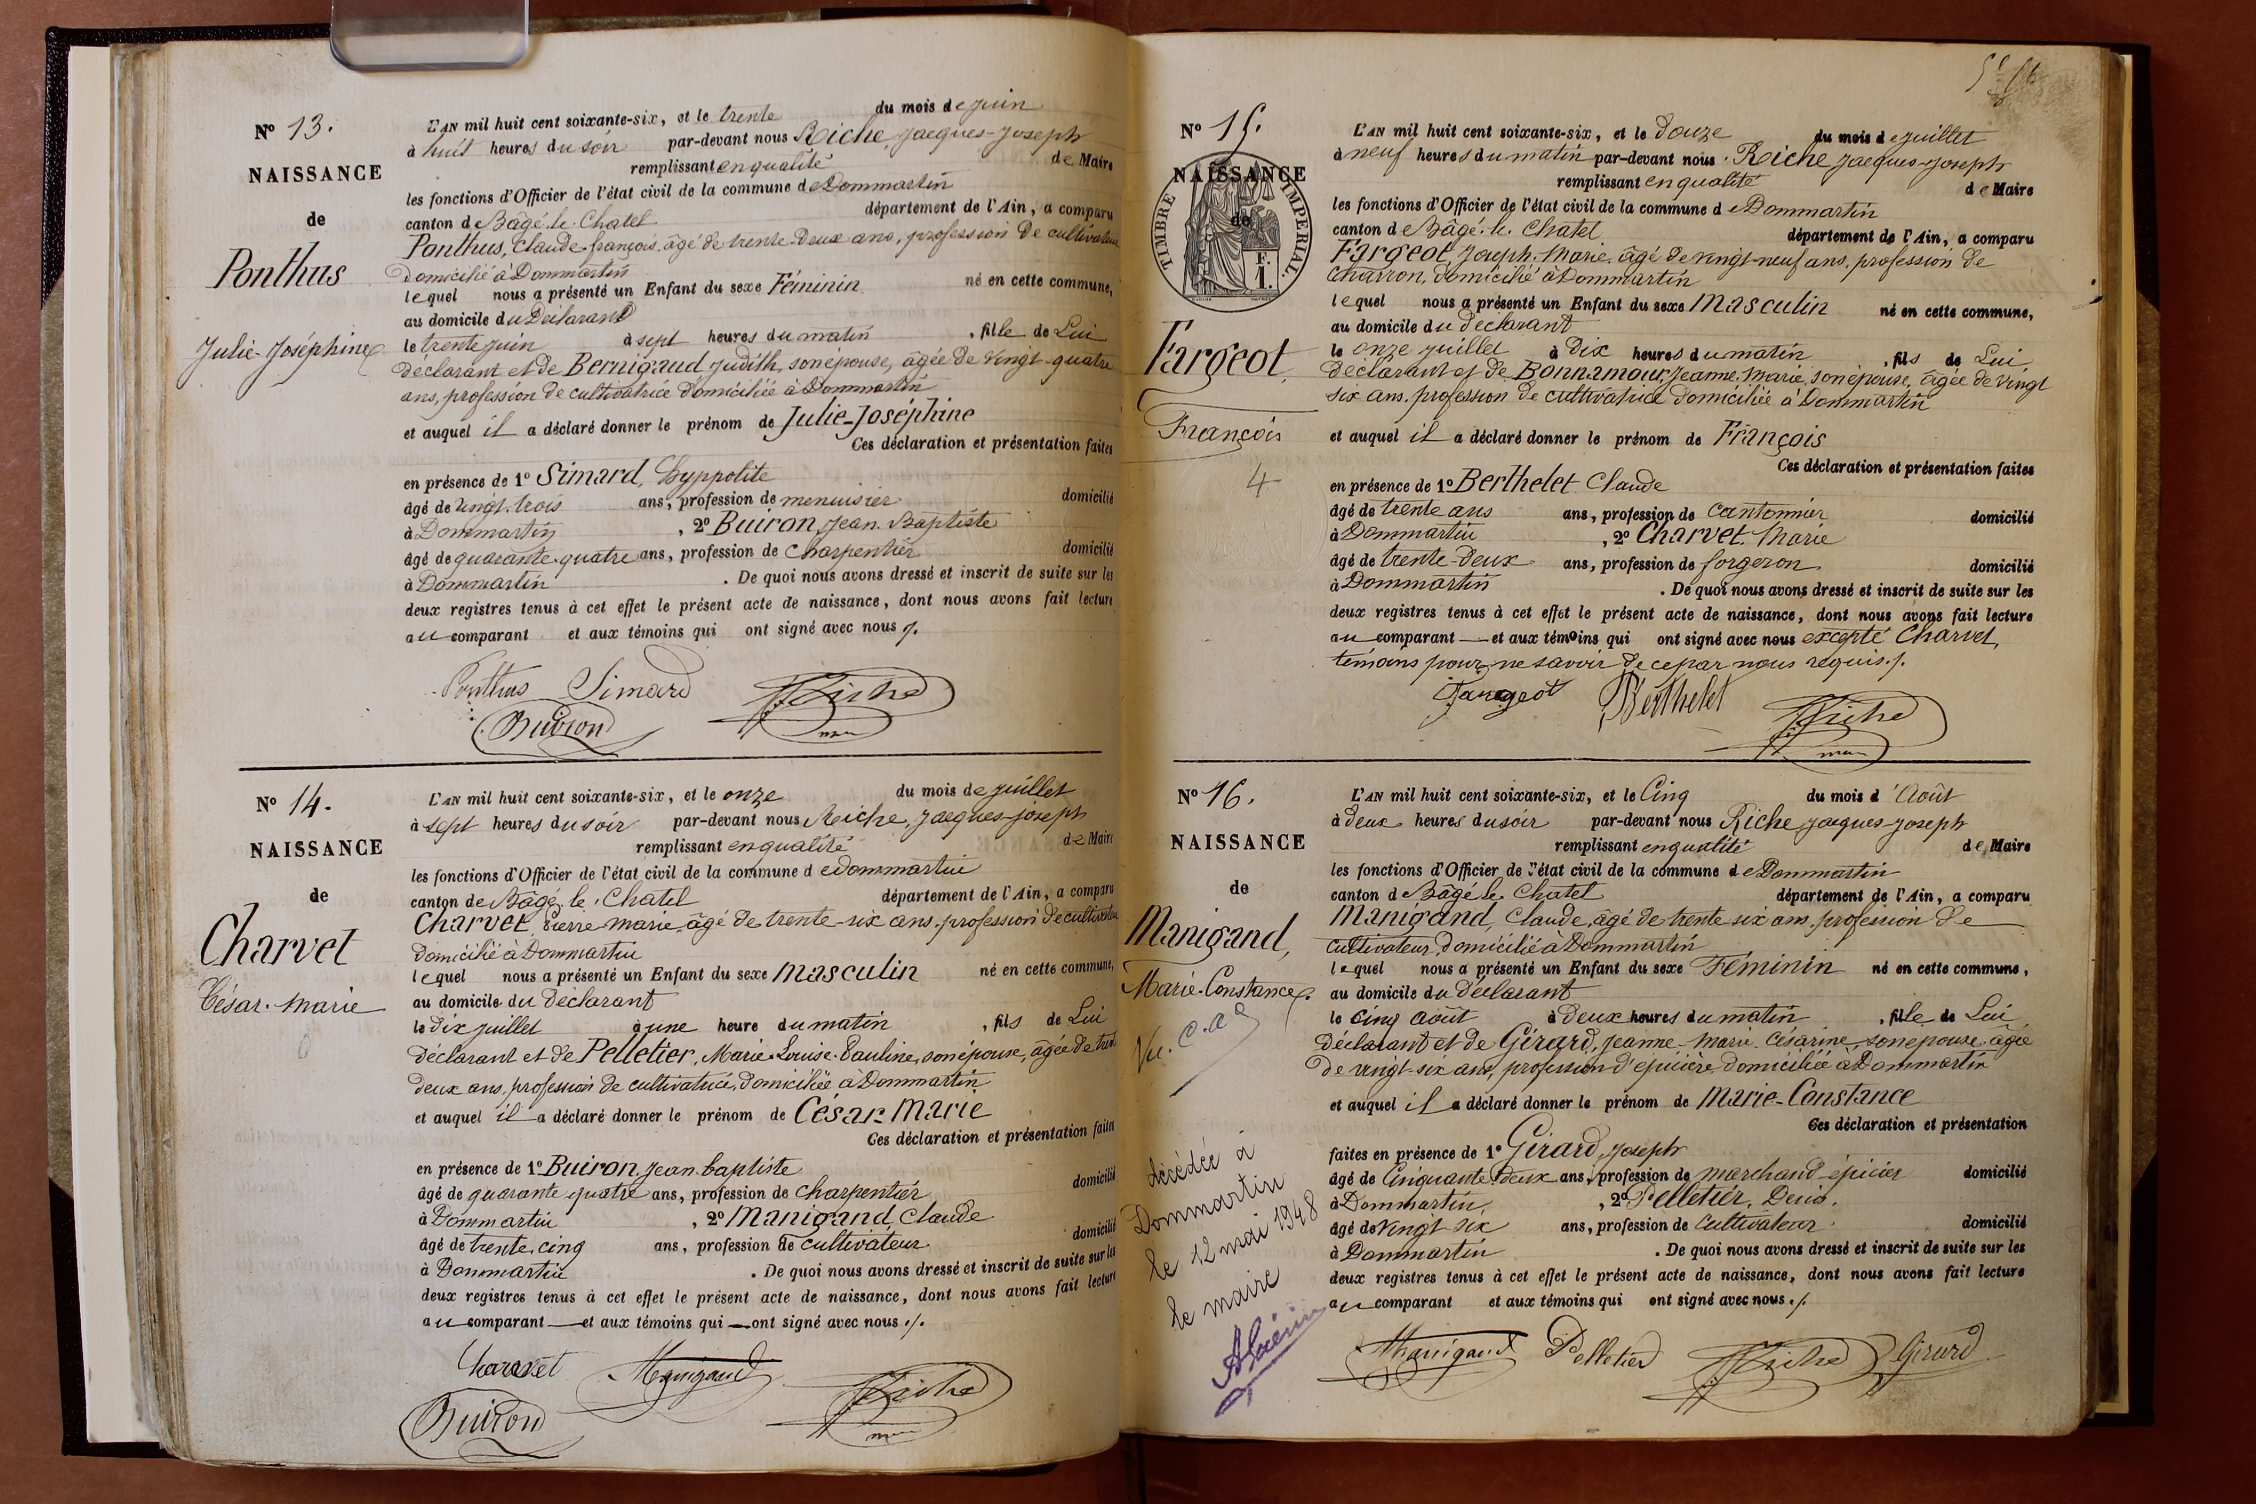 N° 13.
NAISSANCE
de
Ponthus
Julie-Joséphine
L'AN mil huit cent soixante-six, et le trente du mois de juin
à huit heures du soir par-devant nous Riche, Jacques-Joseph
remplissant en qualité de Maire
les fonctions d'Officier de l'état civil de la commune de Dommartin
canton de Bâgé-le-Chatel département de l'Ain, a comparu
Ponthus, Claude-françois, âgé de trente-deux ans, profession de cultivateur
domicilié à Dommartin
lequel nous a présenté un Enfant du sexe Féminin né en cette commune,
au domicile du Déclarant
le trente juin à sept heures du matin, fille de Lui
déclarant et de Bernigaud Judith, son épouse, âgée de vingt-quatre
ans, profession de cultivatrice domiciliée à Dommartin
et auquel il a déclaré donner le prénom de Julie-Joséphine
Ces déclaration et présentation faites
en présence de 1° Simard, hyppolite
âgé de vingt-trois ans, profession de menuisier domicilié
à Dommartin, 2° Buiron, Jean-Baptiste
âgé de quarante-quatre ans, profession de charpentier domicilié
à Dommartin. De quoi nous avons dressé et inscrit de suite sur les
deux registres tenus à cet effet le présent acte de naissance, dont nous avons fait lecture
au comparant et aux témoins qui ont signé avec nous ./.
Ponthus Simard Riche
Buiron
N° 14.
NAISSANCE
de
Charvet
César-Marie
L'AN mil huit cent soixante-six, et le onze du mois de juillet
à sept heures du soir par-devant nous Riche, Jacques-joseph
remplissant en qualité de Maire
les fonctions d'Officier de l'état civil de la commune de dommartin
canton de Bâgé-le-Chatel département de l'Ain, a comparu
Charvet, Pierre-marie, âgé de trente-six ans, profession de cultivateur
domicilié à Dommartin
lequel nous a présenté un Enfant du sexe masculin né en cette commune,
au domicile du déclarant
le dix juillet à une heure du matin, fils de Lui
déclarant et de Pelletier, Marie-Louise-Pauline, son épouse, âgée de trente
deux ans, profession de cultivatrice, domiciliée à Dommartin
et auquel il a déclaré donner le prénom de César-Marie
Ces déclaration et présentation faites
en présence de 1° Buiron, Jean-baptiste
âgé de quarante quatre ans, profession de charpentier domicilié
à Dommartin, 2° Manigand, Claude
âgé de trente cinq ans, profession de cultivateur domicilié
à Dommartin. De quoi nous avons dressé et inscrit de suite sur les
deux registres tenus à cet effet le présent acte de naissance, dont nous avons fait lecture
au comparant et aux témoins qui ont signé avec nous ./.
Charvet Manigand Riche
Buiron
N° 15.
NAISSANCE
de
TIMBRE IMPERIAL.
F.
1.
Fargeot,
François
4
L'AN mil huit cent soixante-six, et le douze du mois de juillet
à neuf heures du matin par-devant nous Riche Jacques-Joseph
remplissant en qualité de Maire
les fonctions d'Officier de l'état civil de la commune de Dommartin
canton de Bâgé-le-Chatel département de l'Ain, a comparu
Fargeot, Joseph-Marie, âgé de vingt-neuf ans, profession de
charron, domicilié à Dommartin
lequel nous a présenté un Enfant du sexe masculin né en cette commune,
au domicile du déclarant
le onze juillet à dix heures du matin, fils de Lui
déclarant et de Bonnamour, Jeanne-Marie, son épouse, âgée de vingt
six ans, profession de cultivatrice domiciliée à Dommartin
et auquel il a déclaré donner le prénom de François
Ces déclaration et présentation faites
en présence de 1° Berthelet Claude
âgé de trente ans ans, profession de cantonnier domicilié
à Dommartin, 2° Charvet Marie
âgé de trente-deux ans, profession de forgeron domicilié
à Dommartin. De quoi nous avons dressé et inscrit de suite sur les
deux registres tenus à cet effet le présent acte de naissance, dont nous avons fait lecture
au comparant et aux témoins qui ont signé avec nous excepté Charvet,
témoins pour ne savoir de ce par nous requis ./.
Fargeot Berthelet Riche
N° 16.
NAISSANCE
de
Manigand,
Marie-Constance
Vu. C.a
décédée à
Dommartin
le 12 mai 1948
le maire
L'AN mil huit cent soixante-six, et le Cinq du mois d'Août
à deux heures du soir par-devant nous Riche Jacques-Joseph
remplissant en qualité de Maire
les fonctions d'Officier de l'état civil de la commune de Dommartin
canton de Bâgé-le-Chatel département de l'Ain, a comparu
Manigand, Claude, âgé de trente six ans, profession de
cultivateur, domicilié à Dommartin
lequel nous a présenté un Enfant du sexe Féminin né en cette commune,
au domicile du déclarant
le cinq août à deux heures du matin, fille de Lui
déclarant et de Girard, Jeanne-Marie-Césarine, son épouse, âgée
de vingt-six ans, profession d'épicière domiciliée à Dommartin
et auquel il a déclaré donner le prénom de Marie-Constance
Ces déclaration et présentation
faites en présence de 1° Girard, Joseph
âgé de Cinquante deux ans, profession de marchand épicier domicilié
à Dommartin, 2° Pelletier, Denis
âgé de vingt six ans, profession de cultivateur domicilié
à Dommartin. De quoi nous avons dressé et inscrit de suite sur les
deux registres tenus à cet effet le présent acte de naissance, dont nous avons fait lecture
au comparant et aux témoins qui ont signé avec nous ./.
Manigand Pelletier Riche Girard